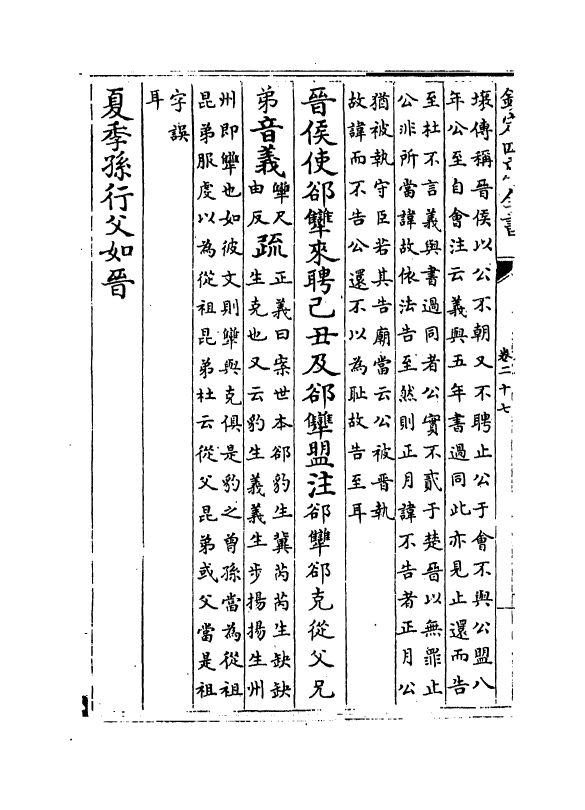 欽定四庫全書
卷二十七
壤傳稱晉侯以公不朝又不聘止公于會不與公盟八
年公至自會注云義與五年書過同此亦見止還而告
至杜不言義與書過同者公實不貳于楚晉以無罪止
公非所當諱故依法告至然則正月諱不告者正月公
猶被執守臣若其告廟當云公被晉執
故諱而不告公還不以為耻故告至耳
晉侯使郤犨來聘己丑及郤犨盟注郤犨郤克從父兄
弟音義犨尺
由反疏正義曰案世本郤豹生冀芮芮生缺缺
生克也又云豹生義義生步揚揚生州
州即犨也如彼文則犨與克俱是豹之曾孫當為從祖
昆弟服虔以為從祖昆弟杜云從父昆弟或父當是祖
字誤
耳
夏季孫行父如晉